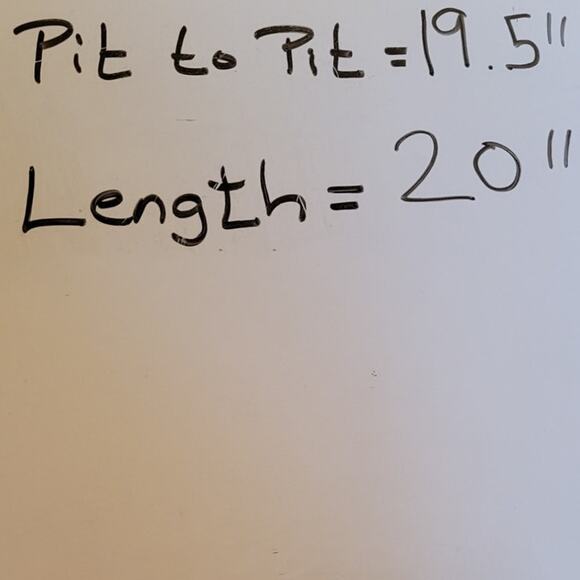 Pit to Pit = 19.5"
Length = 20"